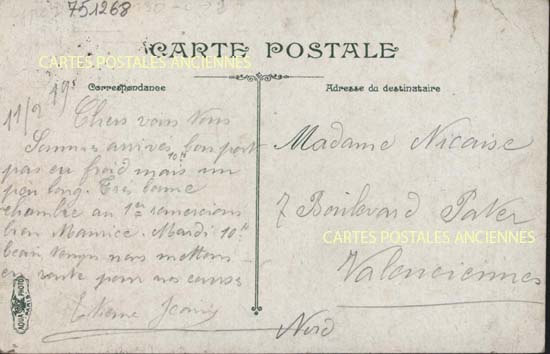 751268
CARTES POSTALES ANCIENNES
CARTE POSTALE
Correspondance
Adresse du destinataire
11/9
Chers vous tous
Sommes arrivés bon port
pas eu froid mais un
peu long. Très bonne
chambre au 1er remercions
bien Maurice. Mardi 10h
beau temps nous mettons
en route pour nos courses
Etienne
Madame Nicaise
7 Boulevard Pater
CARTES POSTALES ANCIENNES
Valenciennes
Nord
AQUA PHOTO
PARIS